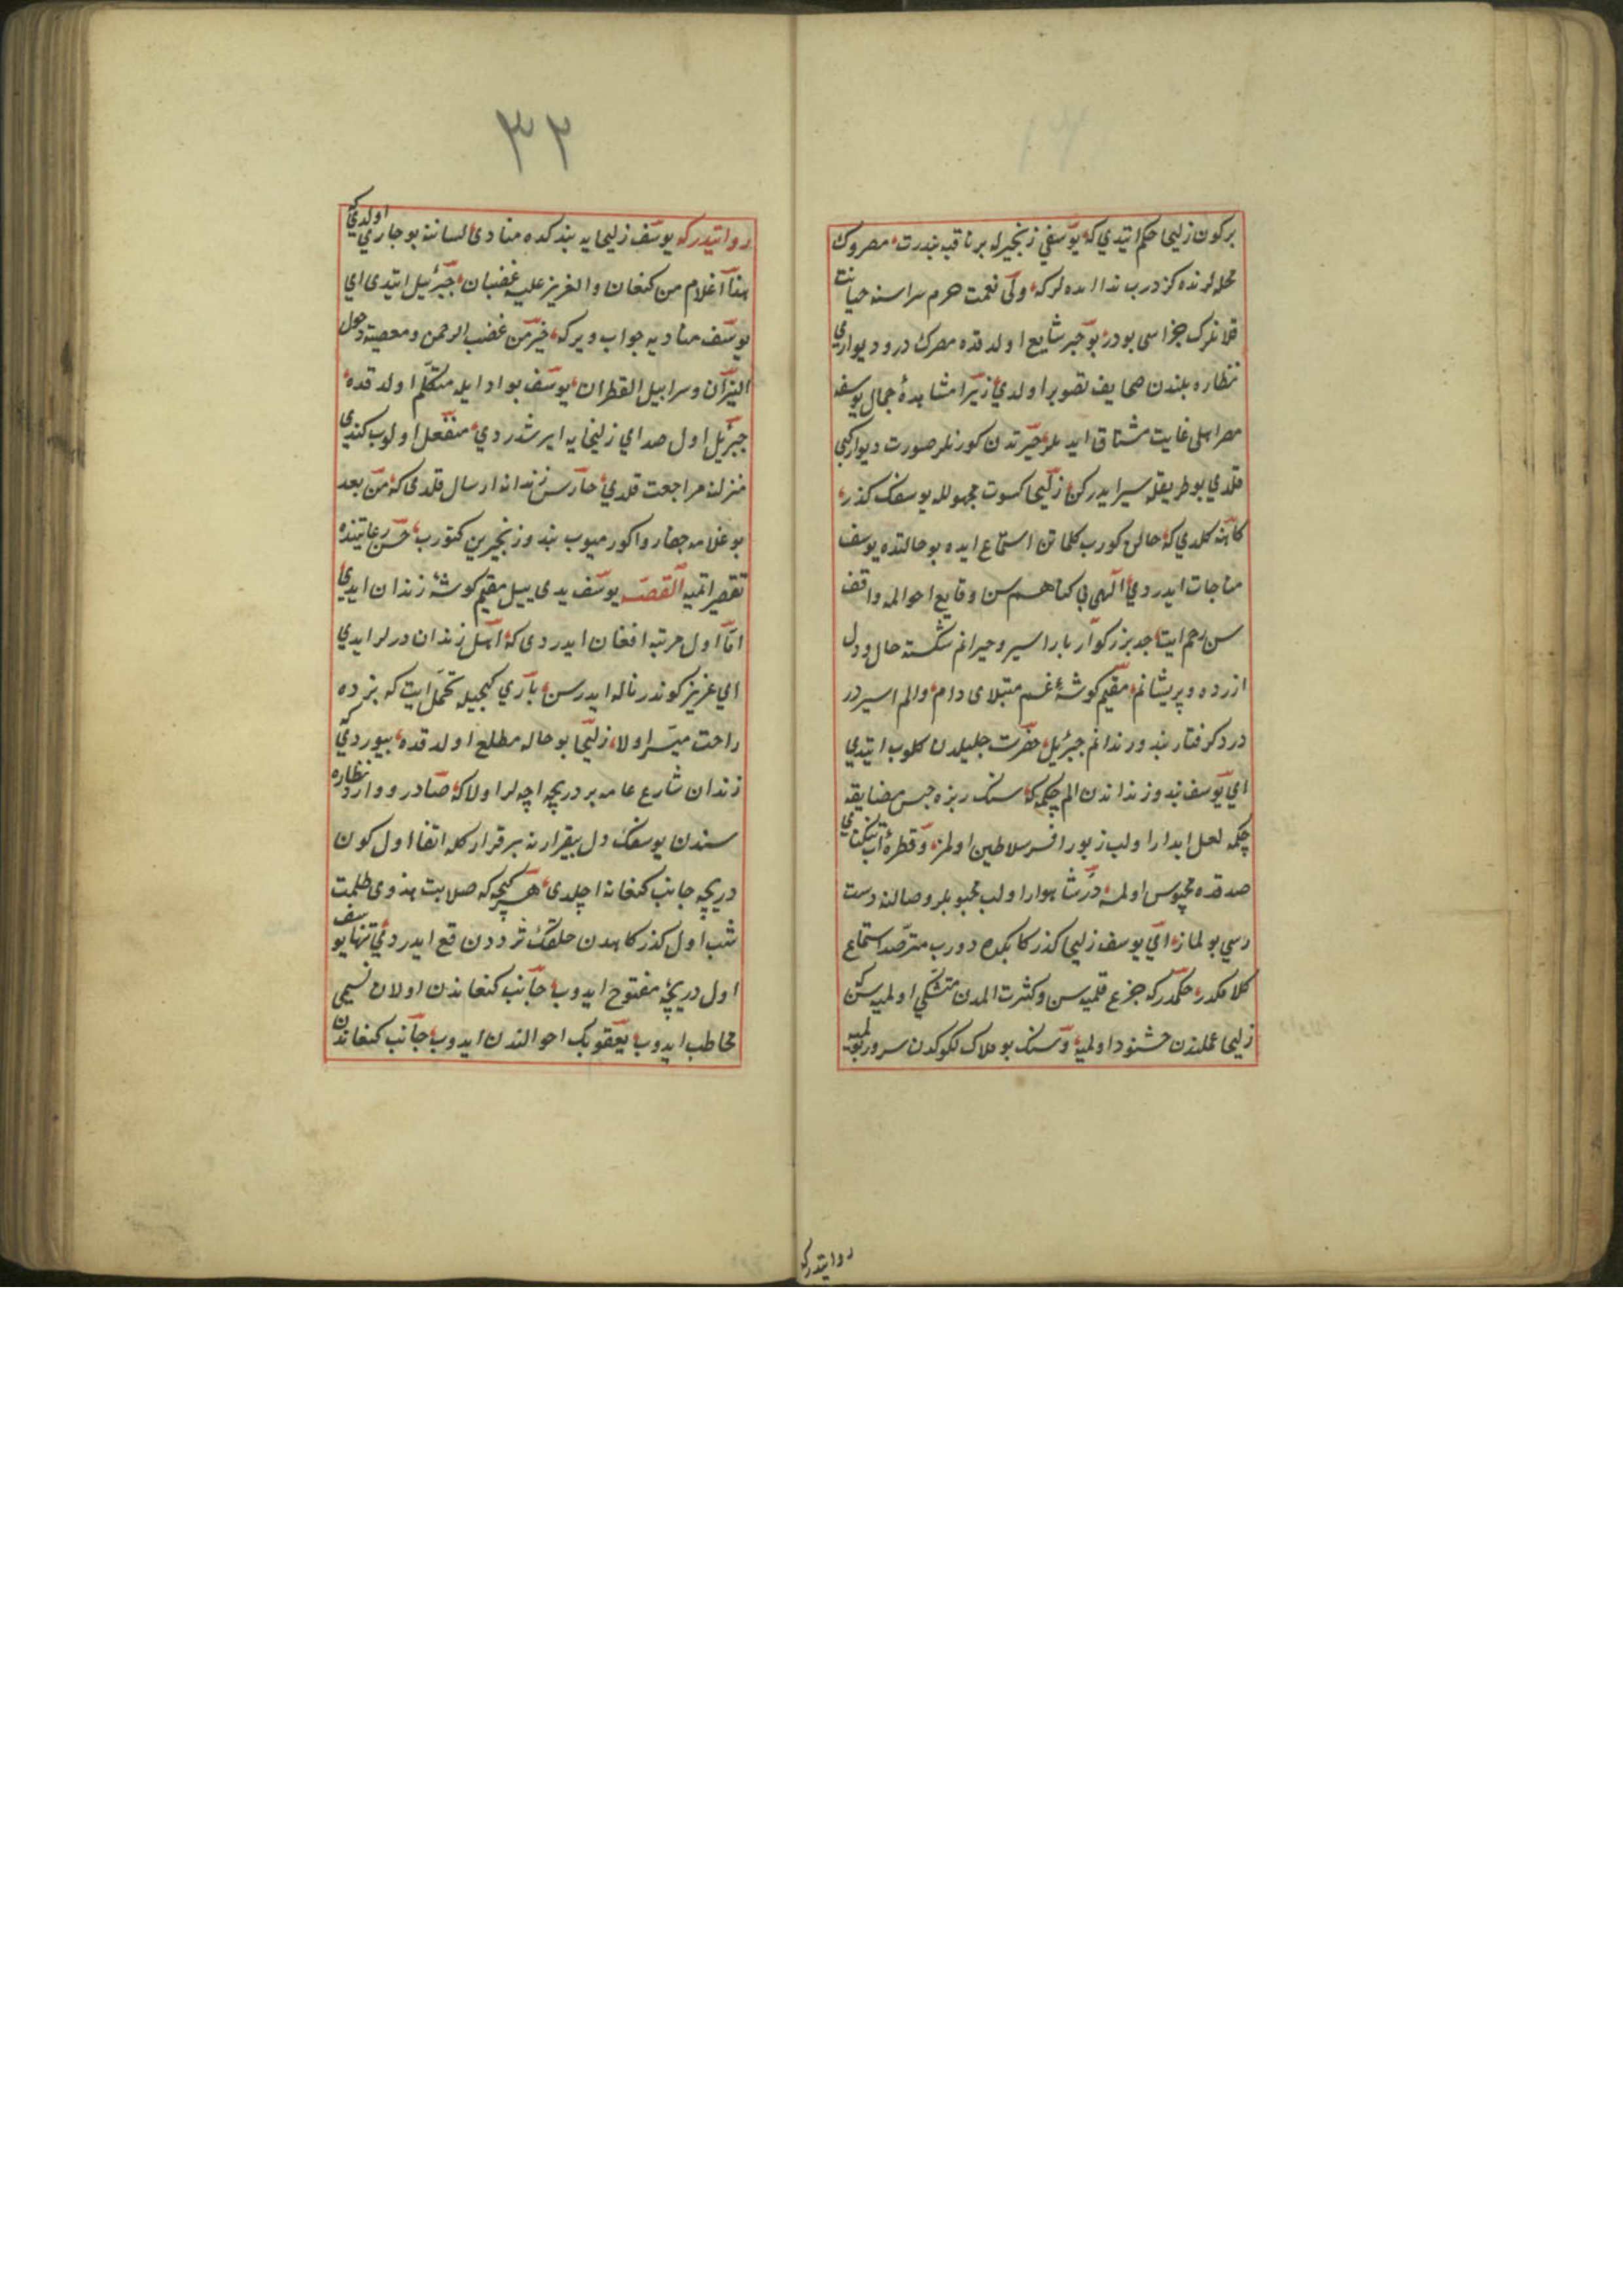 بركون زليخا حكم ايتدي كه يوسفي زنجيرله بر ناقيه بندرت مصروك
محله لرنده كزدرب ندا ايده لركه ولي نعمت حرم سراسنه خيانت
قلانلرك جزاسى بودر بو خبر شايع اولدقده مصرك در و ديواري
نظاره بلندن صحايف تصوير اولدي زيرا مشاهدۀ جمال يوسفه
مصر اهلى غايت مشتاق ايديلر حيرتدن كورنلر صورت ديوار كبي
قلدي بو طريقله سير ايدركن زليخا كسوت مجهولله يوسفك كذر
كاهنه كلدي كه حالن كورب كلماتن استماع ايده بو حالتده يوسف
مناجات ايدردي الهى بى كناهم سن وقايع احوالمه واقف
سن رحم ايت جد بزركوار اسير و حيرانم شكسته حال و دل
ازرده و پريشانم مقيم كوشۀ غم مبتلاى دام و الم اسير در
درد كرفتار بند و زندانم جبرئيل حضرت جليلدن كلوب ايتدي
اي يوسف بند و زنداندن الم چكمه كه سنك ريزه حبس مضايقه
چكمه لعل ابدار اولب زيور افسر سلاطين اولمز و قطرۀ آب تنكناي
صدفده محبوس اولمه در شاهوار اولب محبوبلر وصالنه دست
رسي بولماز اي يوسف زليخا كذركاهكده دورب مترصد استماع
كلامكدر حكمدركه جزع قلميه سن و كثرت المدن متشكي اولميه سن كه
زليخا عملندن خشنود اولميه و سنك بو هلاك لكوكدن سرور بولميه
روايتدركه
٣٢
روايتدركه يوسف زليخايه بندكده منادى لسانه بو جاري اولدي كه
هذا غلام من كنعان و العزيز عليه غضبان جبرئيل ايتدى اي
يوسف مناديه جواب ويركه خير من غضب الرحمن و معصيته و دخول
النيران و سرابيل القطران يوسف بو ادايله متكلم اولدقده
جبرئيل اول صداي زليخايه ايرشدردي منفعل اولوب كندي
منزلنه مراجعت قلدي حارس زندانه ارسال قلدى كه من بعد
بو غلامه جفا روا كورميوب بند و زنجيرين كتورب حسن رعايتنده
تقصير اتميه القصه يوسف يدى ييل مقيم كوشۀ زندان ايدي
اما اول مرتبه افغان ايدردى كه اهل زندان ديرلر ايدي
اي عزيز كوندز ناله ايدرسن باري كيجه ايله تحمل ايت كه بزه ده
راحت ميسر اولا زليخا بو حاله مطلع اولدقده بيوردي كه
زندان شارع عامه بر دريچه اچه لر اولا كه صادر و وارد نظاره
سندن يوسفك دل بيقرارنه بر قرار كله اتفاقا اول كون
دريچه جانب كنعانه اچلدى هر كيجه كه صلابت هندوى ظلمت
شب اول كذركاهدن خلقك ترددن قطع ايدردي تنها يوسف
اول دريچۀ مفتوح ايدوب جانب كنعاندن اولان نسيمى
مخاطب ايدوب يعقوبك احوالندن ايدوب جانب كنعاندن